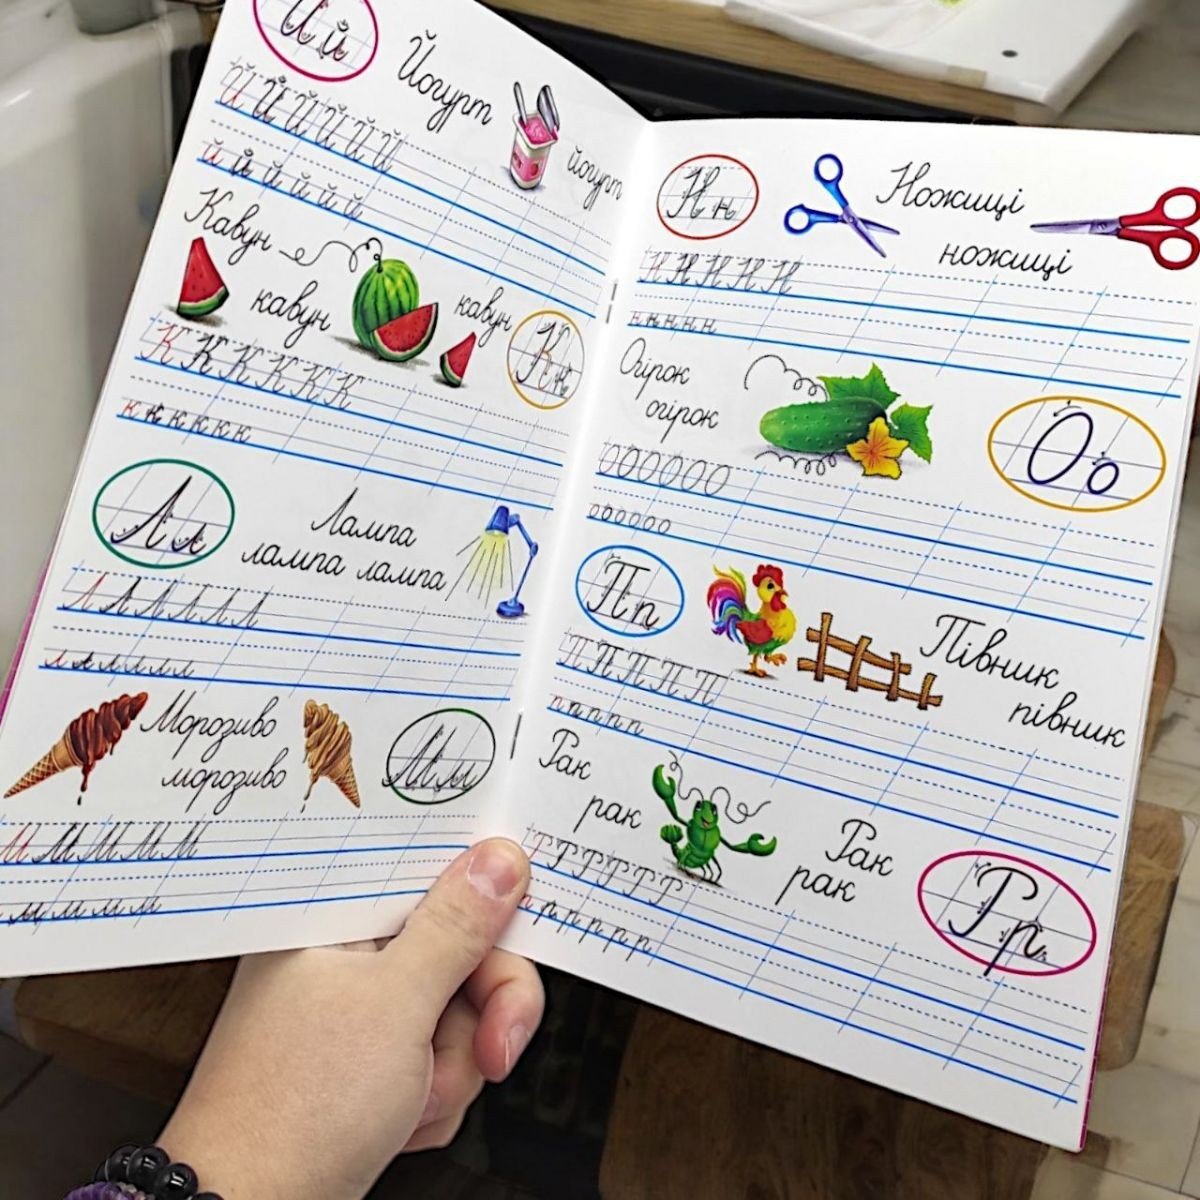 Й й
Йогурт
йогурт
Й Й Й Й Й Й
й й й й й й
Кавун
кавун
кавун
К к
К К К К К К
к к к к к к
Л л
Лампа
лампа лампа
Л Л Л Л Л Л
л л л л л л
Морозиво
морозиво
М м
М М М М М
м м м м м
Н н
Ножиці
ножиці
Н Н Н Н Н
н н н н н
Огірок
огірок
О о
О О О О О О
о о о о о о
П п
Півник
півник
П П П П П
п п п п п
Рак
рак
Рак
рак
Р р
Р Р Р Р Р Р
р р р р р р